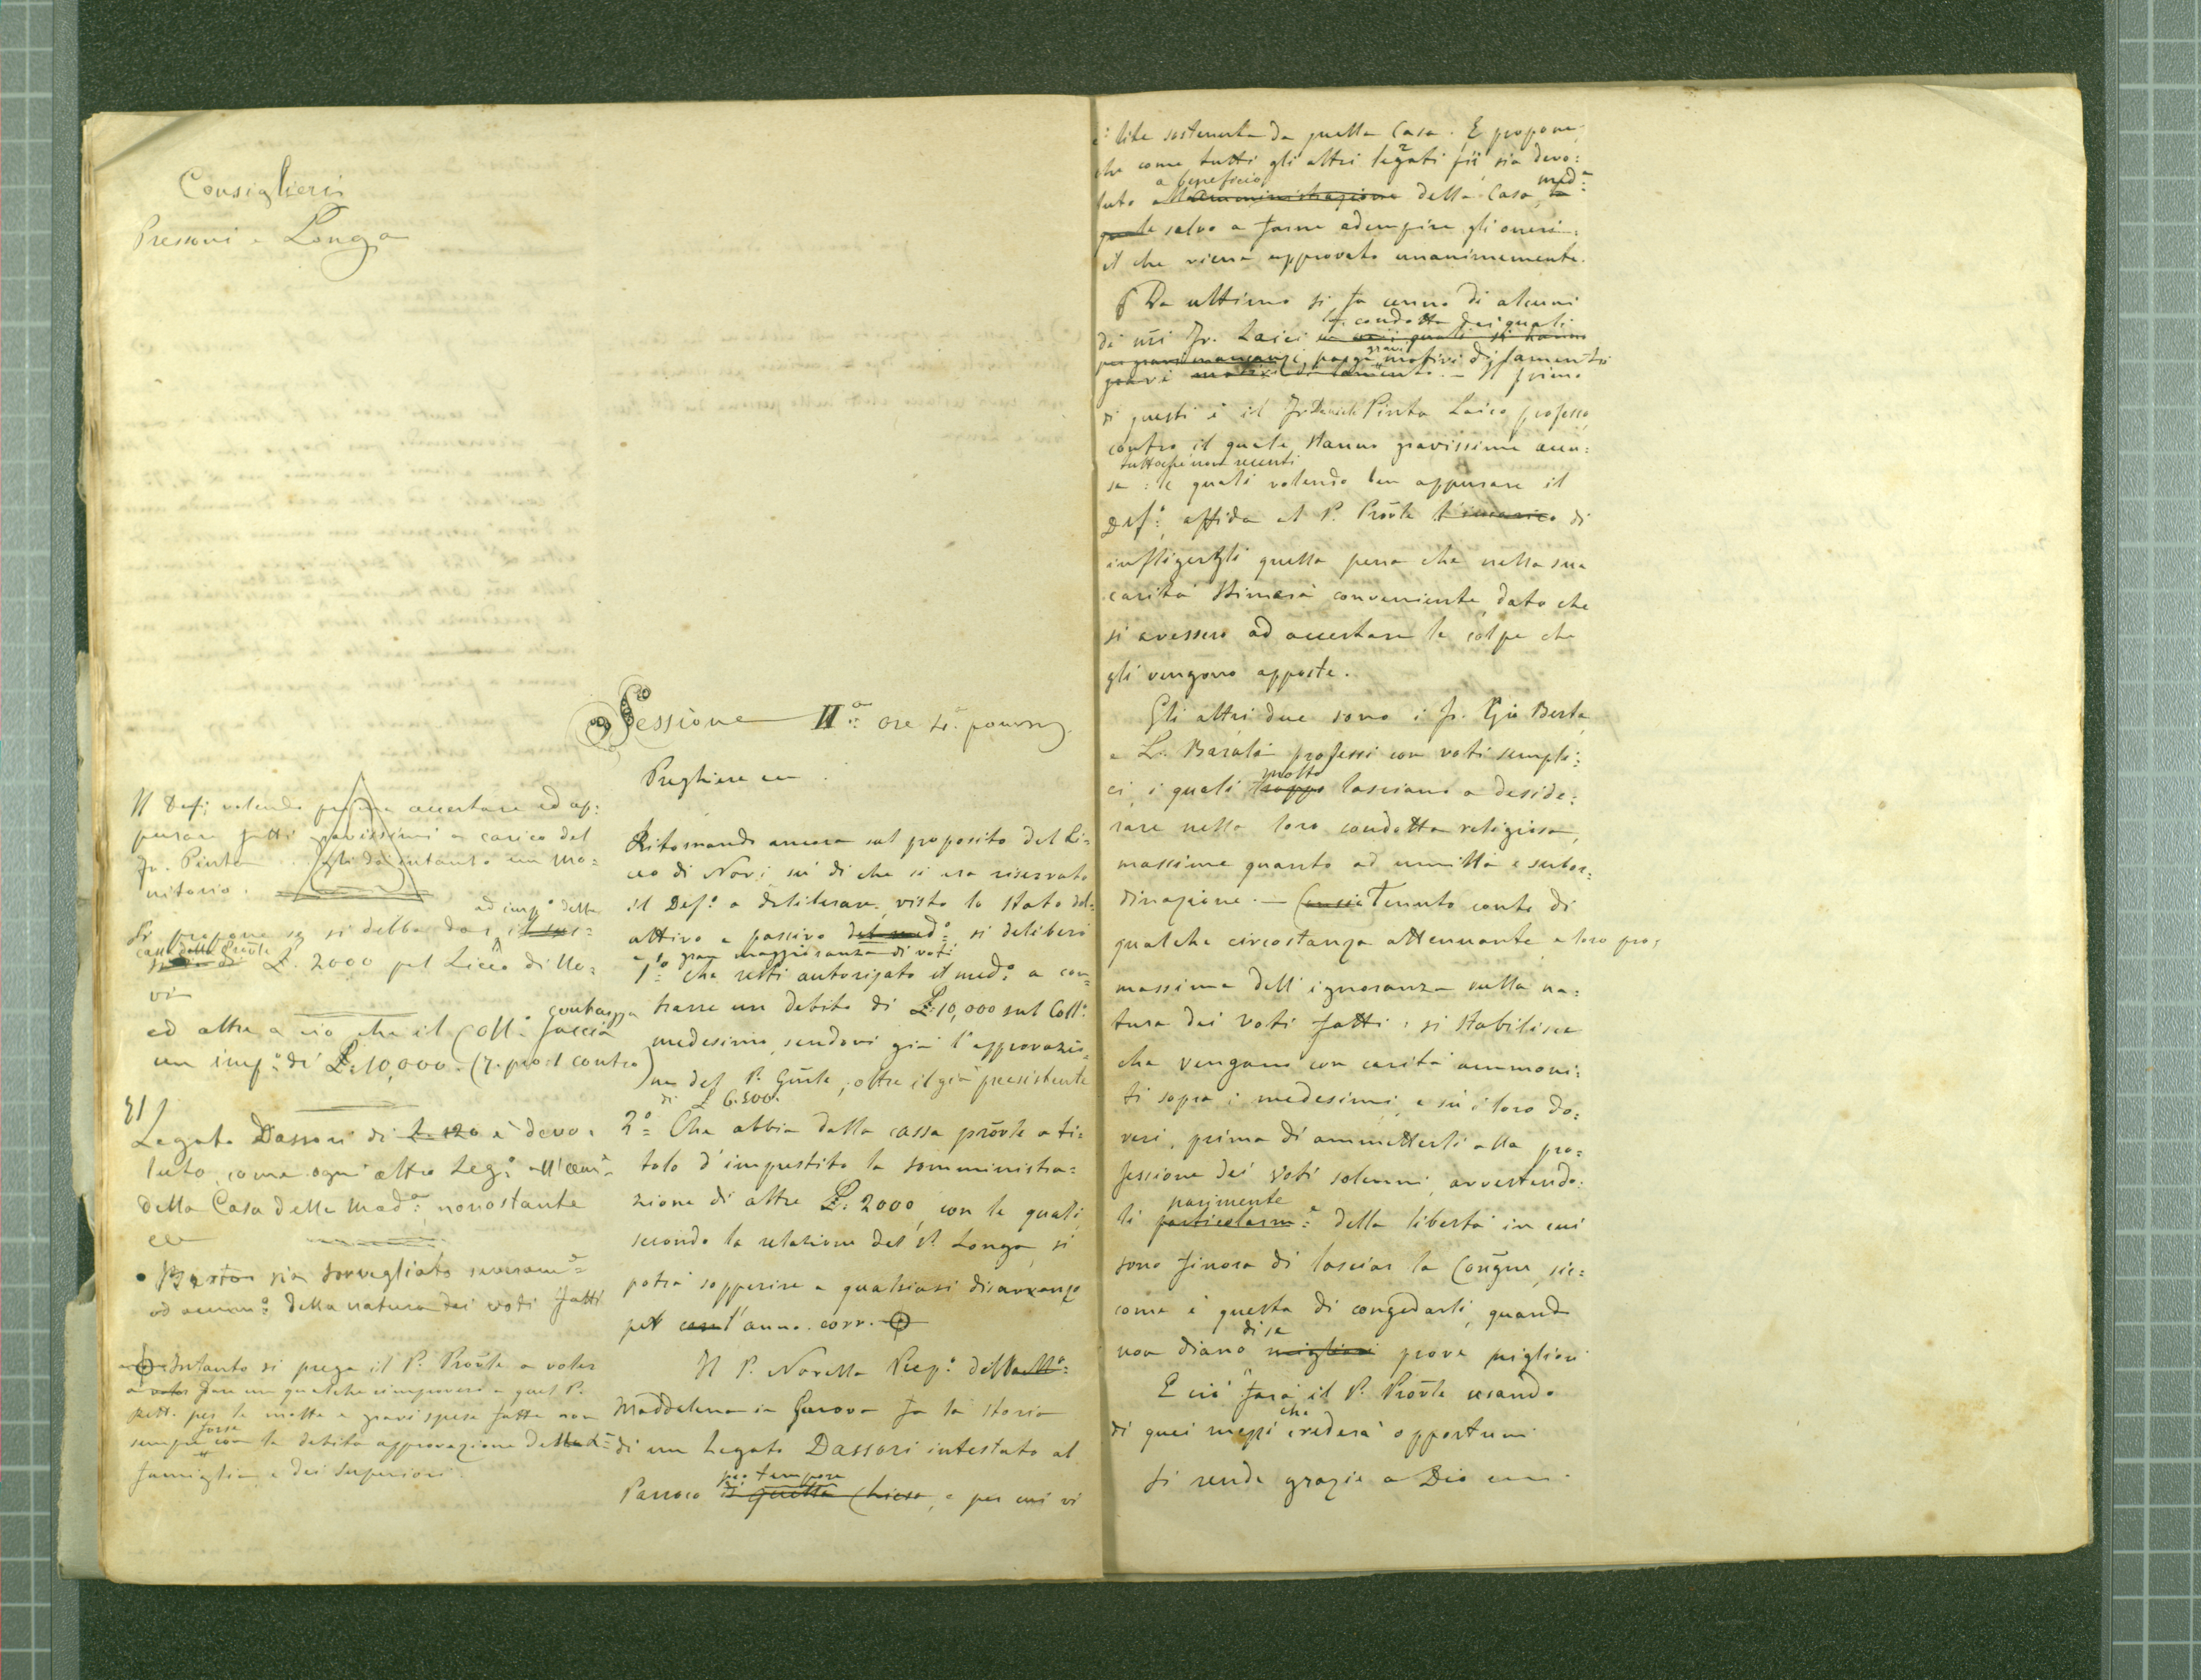 Consiglieri
Pressoni e Longa
Il Def: volendo prima accertare ed ap:
purare fatti gravissimi a carico del
Fr. Pinta gli dà intanto un mo=
nitorio.
Si propone se si debba dar ad imp.o della
cassa della Provle £. 2000 pel Liceo di No=
vi
ed altre a ciò che il Coll. faccia contragga
un imp: di £: 10,000. (7. pro 1 contro)
Legato Dassori di è devo=
luto, come ogni altro Leg:
della Casa della Mad:a nonostante
sia sorvegliato severam:e
ed amm:o della natura dei voti fatti
Intanto si prega il P. Provle a voler
a voler fare un qualche rimprovero a quel P.
Rett. per le molte e gravi spese fatte non
sempre forse con la debita approvazione della
famiglia, e dei Superiori.
Sessione IIa: ore 4. pomerid.
Preghiere ec.
Ritornando ancora sul proposito del Li=
ceo di Novi su di che si era riservato
il Def.o a deliberare, visto lo stato del=
attivo e passivo del med:o si deliberò
a gran maggioranza di voti
1o: che resti autorizato il med:o a con=
trarre un debito di £: 10,000 sul Coll:
medesimo, sendovi già l'approvazio=
ne del P. Gnrle, oltre il già preesistente
di £ 6.500.
2o= Che abbia dalla cassa provle a ti=
tolo d'imprestito la somministra=
zione di altre £: 2000, con le quali,
secondo la relazione del P. Longa, si
potrà sopperire a qualsiasi disavanzo
pel l'anno corr.
Il P. Novella Prep.o della Ma:
Maddalena in Genova fa la storia
di un Legato Dassori intestato al
Parroco pro tempore di quella Chiesa, e per cui vi
è: lite sostenuta da quella Casa. E propone
che come tutti gli altri legati pii sia devo:
luto a beneficio all'amministrazione della Casa med:a
salvo a farne adempire gli oneri:
il che viene approvato unanimemente.
Da ultimo si fa cenno di alcuni
di nri Fr. Laici la condotta dei quali
porge gravi motivi di lamento
Il primo
di questi è il Fr Daniele Pinta Laico professo,
contro il quale stanno gravissime accu:
tuttochè non recenti
se: le quali volendo ben appurare il
Def:o affida al P. Provle l'incarico di
infliggergli quella pena che nella sua
carità stimerà conveniente, dato che
si avessero ad accertare le colpe che
gli vengono apposte.
Gli altri due sono i Fr. Gio Berta
e L. Baralà professi con voti sempli:
ci, i quali troppo molto lasciano a deside:
rare nella loro condotta religiosa,
massime quanto ad umiltà e subor=
dinazione. — Tenuto conto di
qualche circostanza attenuante a loro pro,
massime dell'ignoranza sulla na:
tura dei voti fatti: si stabilisce
che vengano con carità ammoni:
ti sopra i medesimi, e su i loro do:
veri, prima di ammetterli alla pro=
fessione dei voti solenni, avvertendo:
li parimente particolarm:e della libertà in cui
sono finora di lasciar la Congne, sic=
come è questa di congedarli, quando
non diano di se migliori prove migliori
E ciò farà il P. Provle usando
di quei mezzi che crederà opportuni
Si rende grazie a Dio ecc.